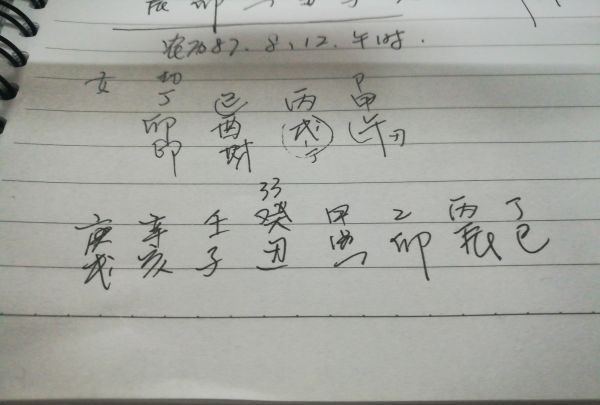 农历87.8.12.午时.
女 劫
丁 己 丙 甲
卯 酉 戌 午刃
印 财 丁
33
庚 辛 壬 癸 甲 乙 丙 丁
戌 亥 子 丑 寅 卯 辰 巳